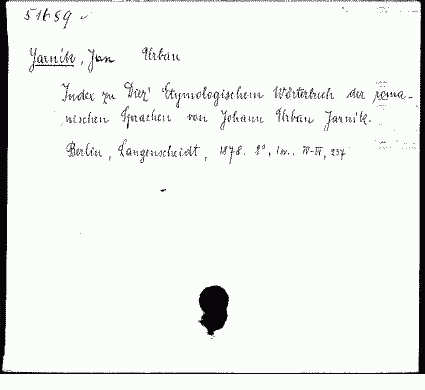 51659
Jarník, Jan Urban
Index zu Diez' Etymologischem Wörterbuch der roma-
nischen Sprachen von Johann Urban Jarník.
Berlin, Langenscheidt, 1878. 8°, IV-VI, 237